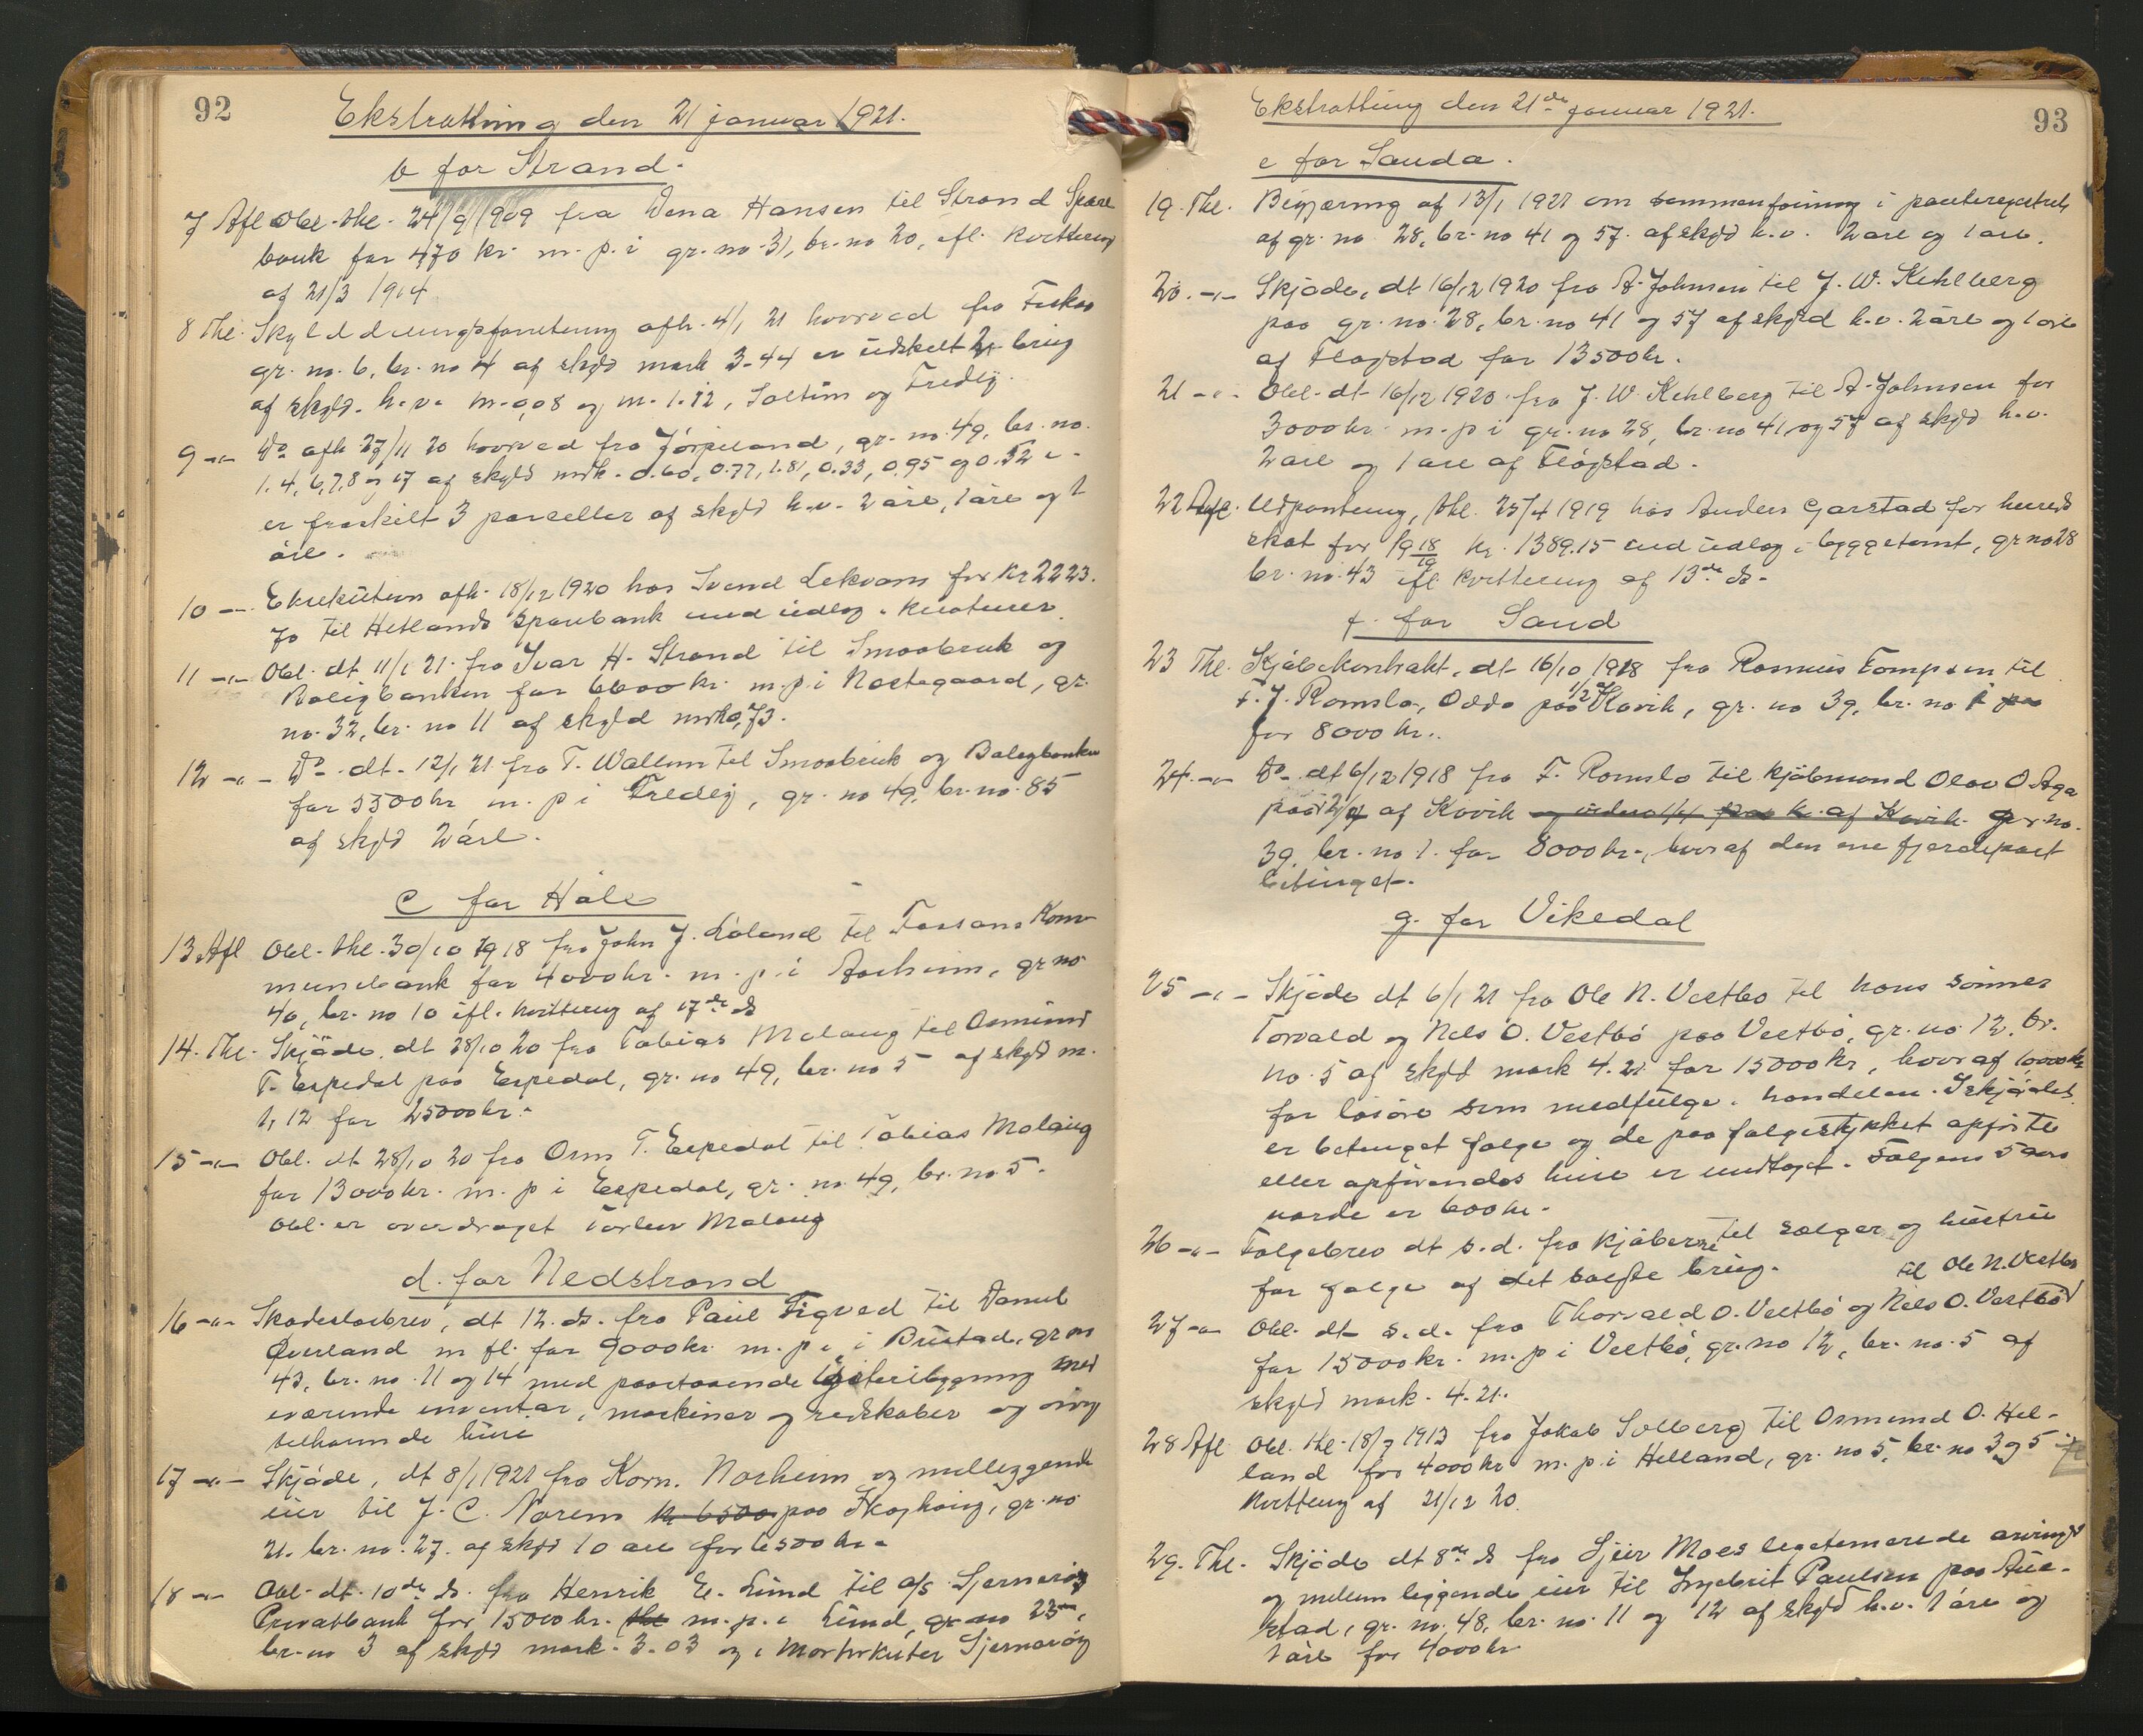 92
Ekstratting den 21 januar 1921.
b for Strand.
7 Afl Obl. thl. 24/9 1909 fra Dena Hansen til Strand Spare
bank for 470 kr. m. p. i gr. no 31, br. no 20, ifl. kvittering
af 21/3 1914
8 Thl. Skylddelingsforretning afh. 4/1 21 hvorved fra Fiskaa
gr. no. 6, br. no 4 af skyld mark 3.44 er udskilt 2 brug
af skyld. h.v. m. 0,08 og m. 1.12, Soltun og Fredly.
9 -"- Do afh 27/11 20 hvorved fra Jørpeland, gr. no 49, br. no.
1. 4, 6, 7, 8 og 17 af skyld mrk. 0.60, 0.77, 1.81, 0.33, 0,95 og 0.52
er fraskilt 3 parceller af skyld h.v. 2 øre, 1 øre og 1
øre.
10 -"- Eksekution afh. 18/12 1920 hos Svend Lekvam for kr 2223.
70 til Hetlands Sparebank med udlæg i kreaturer.
11 -"- Obl. dt 11/1 21. fra Ivar H. Strand til Smaabruk og
Boligbanken for 6600 kr. m. p. i Nostegaard, gr.
no. 32, br. no 11 af skyld mrk 0,73.
12 -"- Do. dt. 12/1 21 fra T. Wallum til Smaabruk og Boligbanken
for 5500 kr m. p i Fredly, gr. no 49, br. no. 85
af skyld 2 øre.
c for Høle
13 Afl Obl. thl. 30/10 1918 fra John J. Løland til Forsans Kom
munebank for 4000 kr. m. p. i Aarheim, gr no
40, br. no 10 ifl. kvittering af 17de ds
14. Thl. Skjøde, dt 28/10 20 fra Tobias Molaug til Osmund
T. Espedal paa Espedal, gr. no 49, br. no 5 af skyld m.
1,12 for 25000 kr.
15 -"- Obl. dt 28/10 20 fra Osm T. Espedal til Tobias Molaug
for 13000 kr. m. p i Espedal, gr. no 49, br. no 5.
Obl. er overdraget Torleiv Molaug
d. for Nedstrand
16 -"- Skadesløsbrev, dt 12. ds. fra Paul Tigved til Daniel
Øverland m fl. for 9000 kr. m. p. i Bustad, gr no
43, br. no 11 og 14 med paastaaende bygning med
værende inventar, maskiner og redskaber og øvrig
tilhørende huse
17 -"- Skjøde, dt 8/1 1921 fra Korn. Norheim og mellliggende
eier til J. C. Norem kr 6500 paa Skoghøug, gr. no
21. br. no. 27. af skyld 10 øre for 6500 kr.
18 -"- Obl. dt. 10de ds. fra Henrik E. Lund til a/s Sjernarøy
Privatbank for 15000 kr. thl m. p. i Lund, gr no 25,
br. no 3 af skyld mark. 3.03 og i Motorkutter Sjernarøy
93
Ekstratting den 21de januar 1921.
e for Sauda.
19. Thl. Begjæring af 13/1 1921 om sammenføining i panteregistret
af gr. no 28, br. no 41 og 57. af skyld h.v. 2 øre og 1 øre.
20. -"- Skjøde, dt 16/12 1920 fra A. Johnsen til J. W. Kehlberg
paa gr. no. 28, br. no 41 og 57 af skyld h.v. 2 øre og 1 øre
af Fløgstad for 13500 kr.
21 -"- Obl. dt 16/12 1920 fra J. W. Kehlberg til A. Johnsen for
3000 kr. m. p i gr. no 28, br. no 41 og 57 af skyld h.v.
2 øre og 1 øre af Fløgstad.
22 Afl. Udpantning, thl. 25/4 1919 hos Anders Garstad for herreds
skat for 1918/19 kr. 1389.15 med udlæg i byggetomt, gr no 28
br. no. 43 ifl kvittering af 13de ds.
f. for Sand
23 Thl. Kjøbekontrakt, dt 16/10 1918 fra Rasmus Tompsen til
F. J. Romslo, Odda paa 1/2 af Kovik, gr. no 39, br. no 1 paa
for 8000 kr.
24. -"- Do. dt 6/12 1918 fra F. Romslo til kjøbmand Olav O. Aga
paa 2/4 af Kovik og videre 1/4 paa k. af Kovik gr. no.
39, br. no 1. for 8000 kr., hvoraf den ene fjerdepart
betinget.
g. for Vikedal
25 -"- Skjøde dt 6/1 21 fra Ole N. Vestbø til hans sønner
Torvald og Nels O. Vestbø paa Vestbø, gr. no 12, br.
no. 5 af skyld mark 4.21 for 15000 kr, hvoraf 10000 kr
for løsøre som medfulge i handelen. I skjødet
er betinget følge og de paa følgestykket opførte
eller opførendes huse er undtaget. Følgens 5 aars
værde er 600 kr.
26 -"- Følgebrev dt s.d. fra kjøberne til sælger og hustru
for følge af det solgte brug.
27 -"- Obl. dt s.d. fra Thorvald O. Vestbø og Nels O. Vestbø til Ole N. Vestbø
for 15000 kr. m. p i Vestbø, gr. no 12, br. no. 5 af
skyld mark. 4.21.
28 Afl Obl. thl. 18/7 1913 fra Jakob Solberg til Osmund O. Hel-
land for 4000 kr m. p. i Helland, gr. no 5, br. no 3 og 5 ifl
kvittering af 21/12 20.
29. Thl. Skjøde dt 8de ds fra Sjur Moes legitimerede arvinger
og mellem liggende eier til Ingebrit Paulsen paa Aue-
stad, gr. no. 48, br. no. 11 og 12 af skyld h.v. 1 øre og
1 øre for 4000 kr